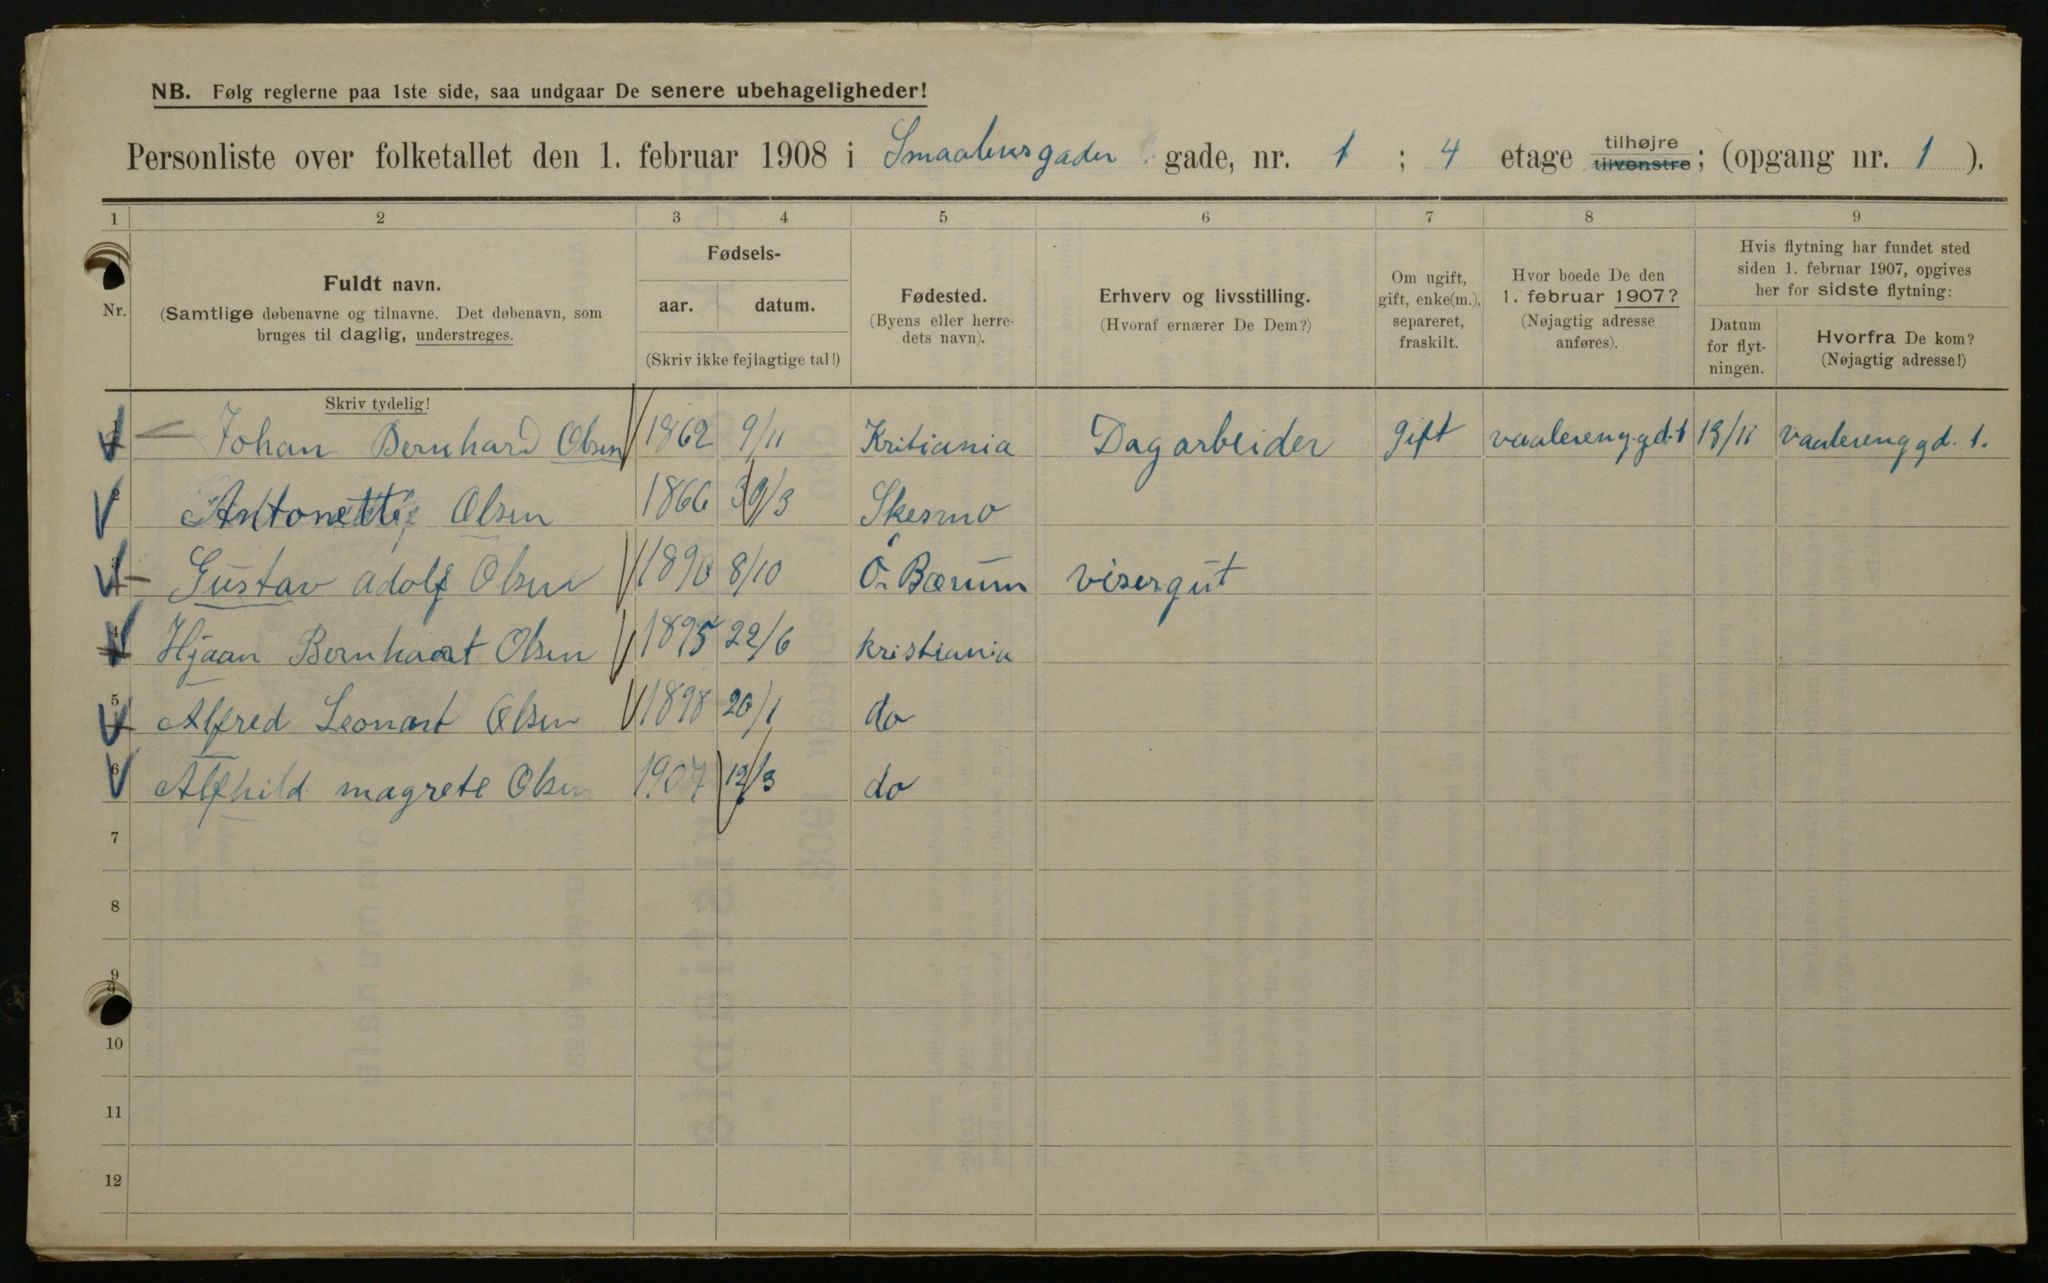 NB. Følg reglerne paa 1ste side, saa undgaar De senere ubehageligheder!
Personliste over folketallet den 1. februar 1908 i Smaalensgaden gade, nr. 1 ; 4 etage tilhøjre tilvenstre; (opgang nr. 1 ).
1 2 3 4 5 6 7 8 9
Nr.
Fuldt navn.
(Samtlige døbenavne og tilnavne. Det døbenavn, som
bruges til daglig, understreges.
Fødsels-
aar. datum.
(Skriv ikke fejlagtige tal!)
Fødested.
(Byens eller herre-
dets navn).
Erhverv og livsstilling.
(Hvoraf ernærer De Dem?)
Om ugift,
gift, enke(m.),
separeret,
fraskilt.
Hvor boede De den
1. februar 1907?
(Nøjagtig adresse
anføres).
Hvis flytning har fundet sted
siden 1. februar 1907, opgives
her for sidste flytning:
Datum
for flyt-
ningen.
Hvorfra De kom?
(Nøjagtig adresse!)
Skriv tydelig!
1 Johan Bernhard Olsen 1862 9/11 Kritiania Dagarbeider gift vaalereng.gd.1 13/11 vaalereng gd. 1.
2 Antonette Olsen 1866 30/3 Skesmo
3 Gustav adolf Olsen 1890 8/10 Ö. Bærum visergut
4 Hjaan Bernhart Olsen 1895 22/6 kristiania
5 Alfred Leonart Olsen 1898 20/1 do
6 Alfhild magrete Olsen 1907 12/3 do
7
8
9
10
11
12